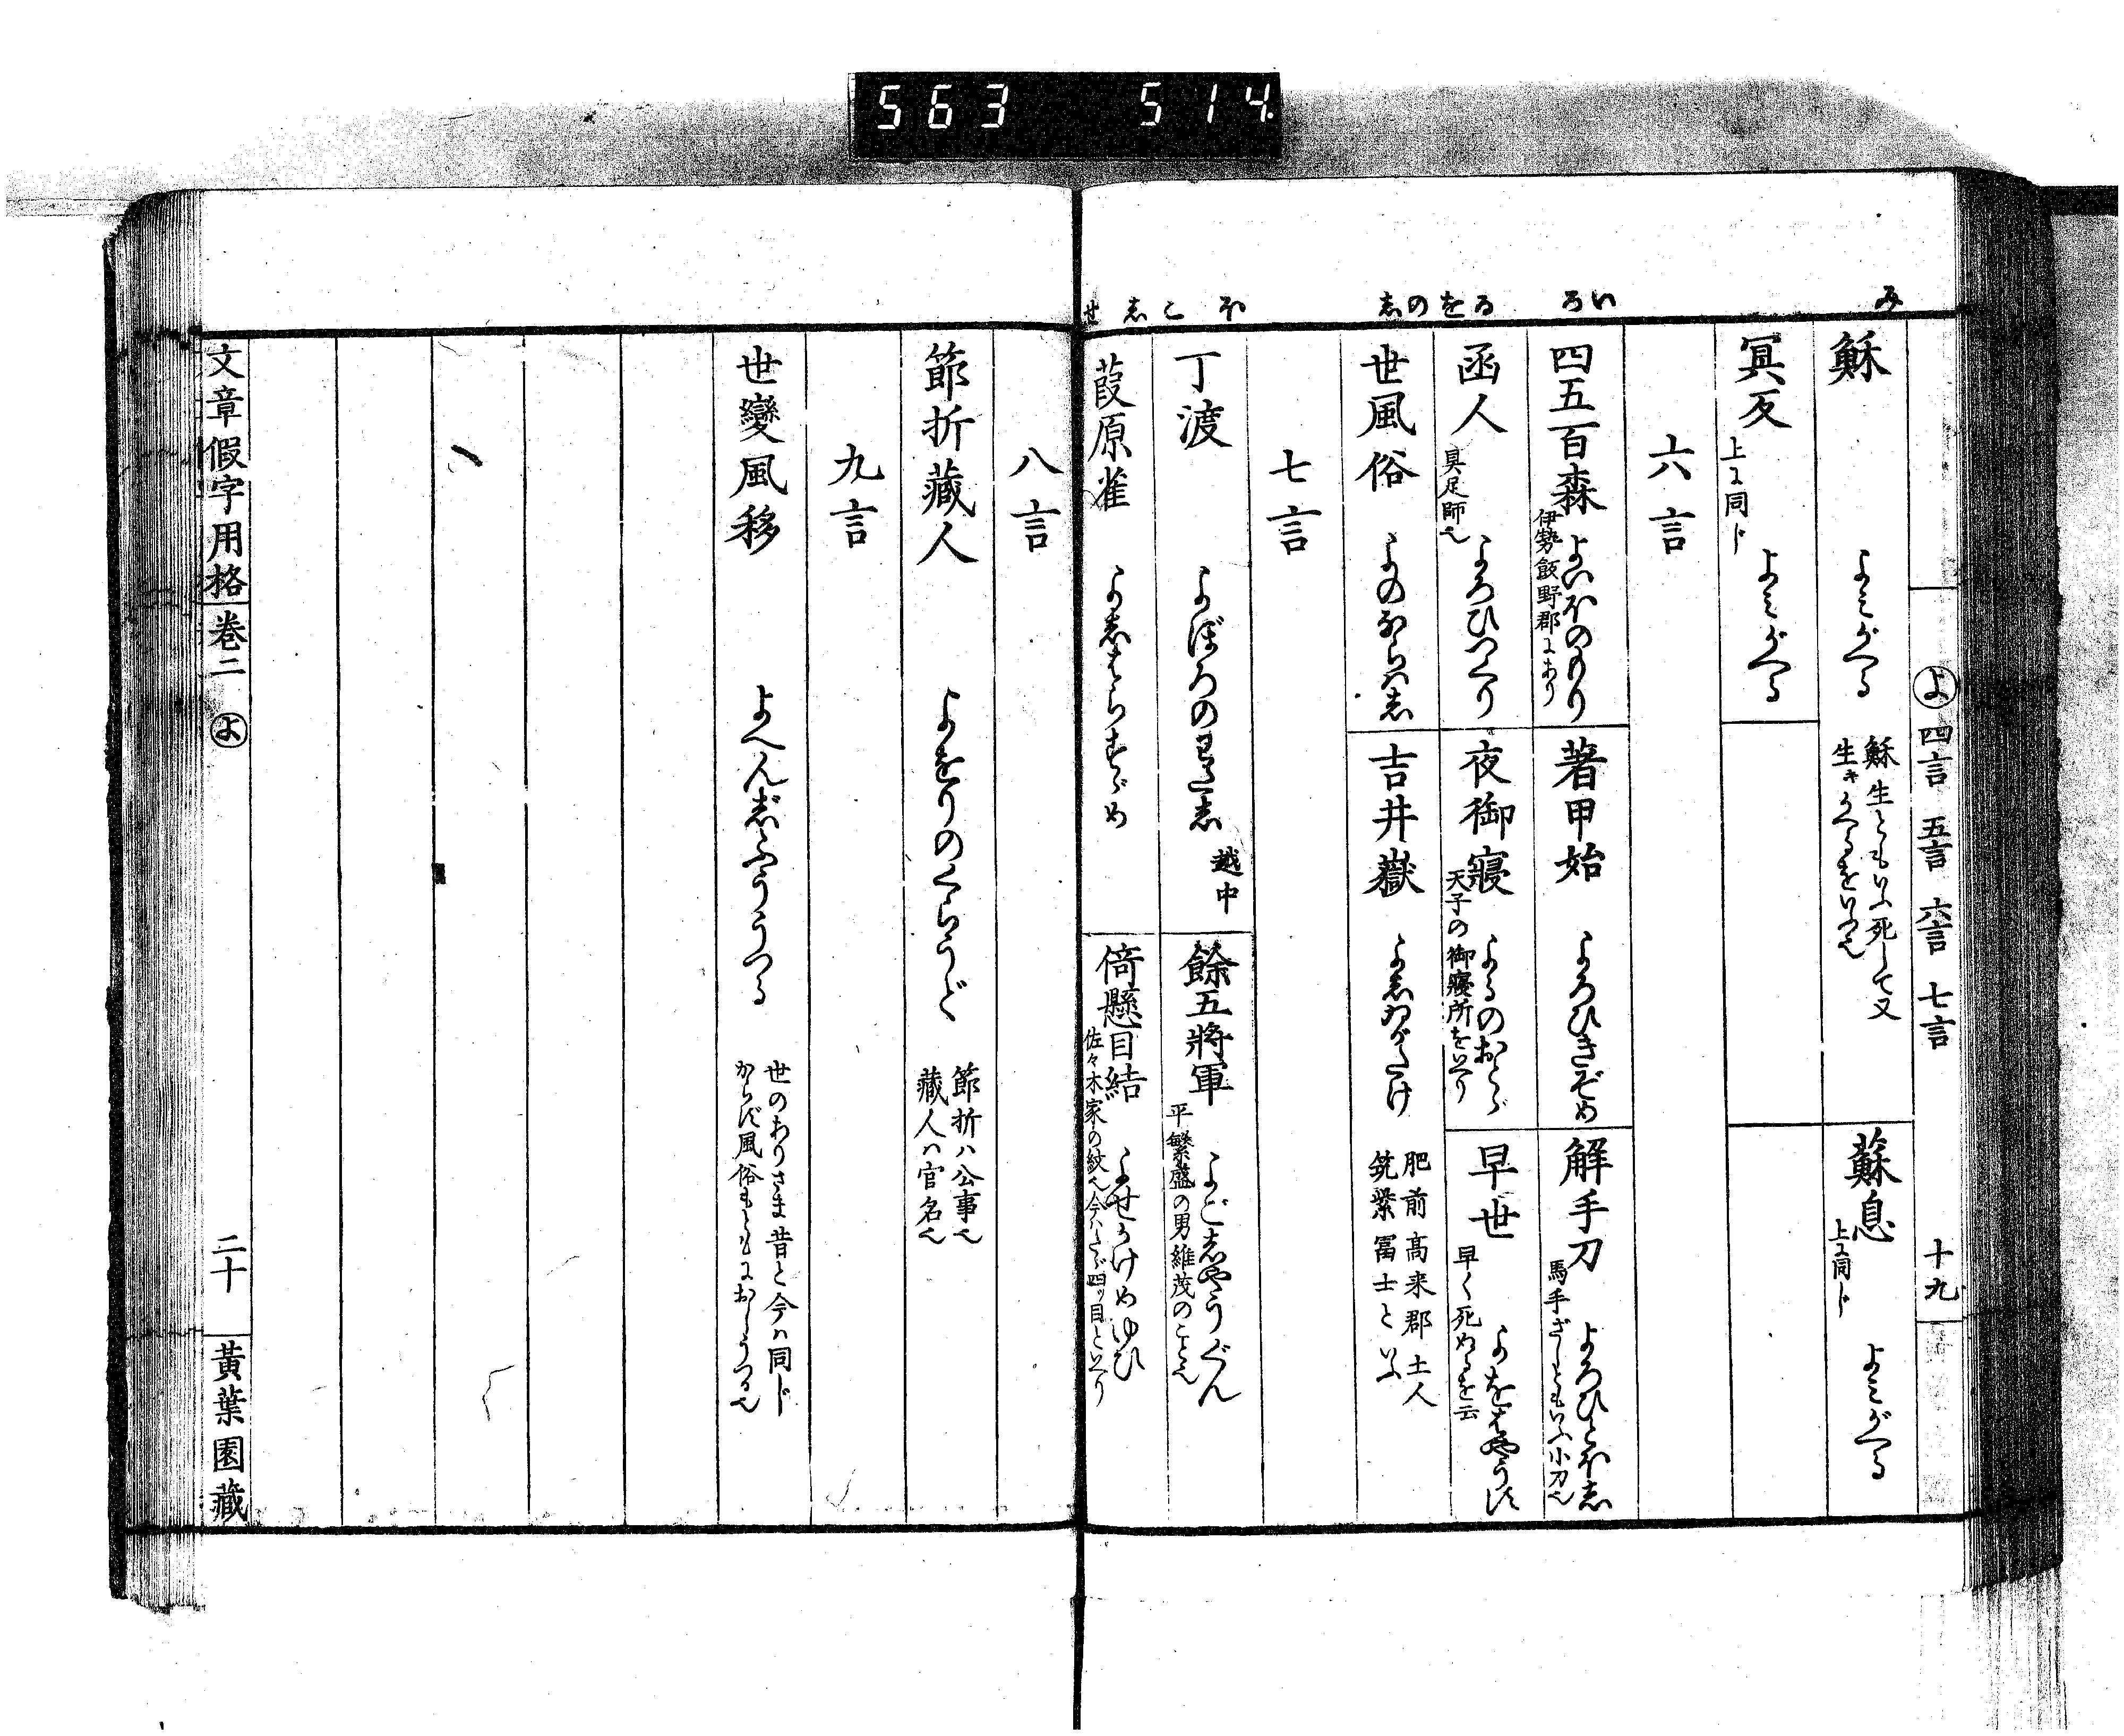 563 514
み
いろ
るをのし
ほ
こ
し
せ
よ 四言 五言 六言 七言 十九
穌 よみがへる 穌生ともいふ死して又
生キかへるをいふ也
蘇息 上に同じ よみがへる
冥反 上に同じ よみがへる
六言
四五百森 よいほのもり 伊勢飯野郡にあり
著甲始 よろひきぞめ
解手刀 よろひとほし 馬手ざしともいふ小刀也
函人 よろひつくり 具足師也
夜御寢 よるのおとゞ 天子の御寢所をいへり
早世 よをはやうす 早く死ぬるを云
世風俗 よのならはし
吉井嶽 よしゐがたけ 肥前高来郡土人
筑紫冨士といふ
七言
丁渡 よぼろのわたし 越中
餘五將軍 よごしやうぐん 平繁盛の男維茂のこと也
葭原雀 よしはらすゞめ
倚懸目結 よせかけめゆひ 佐々木家の紋也今はたゞ四ッ目といへり
八言
節折藏人 よをりのくらうど 節折ハ公事也
藏人ハ官名也
九言
世變風移 よへんじふううつる 世のありさま昔と今ハ同じ
からず風俗もともにおしうつる也
文章假字用格 巻二 よ 二十 黃葉園藏